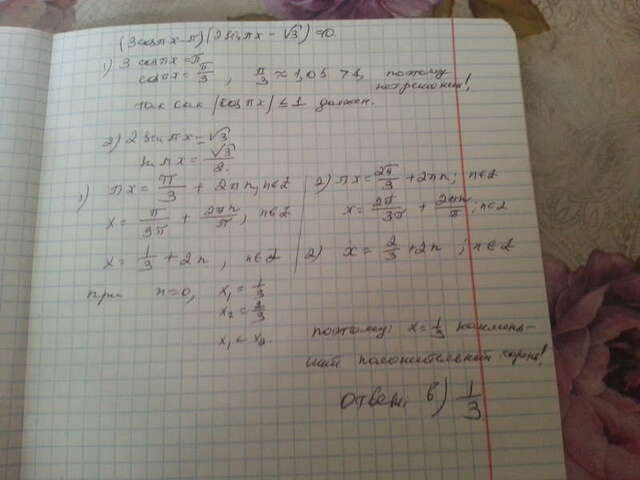 (3 cos πx - π)(2 sin πx - √3) = 0.
1) 3 cos πx = π
cos πx = π/3, π/3 ≈ 1,05 > 1, поэтому нет решений!
так как |cos πx| ≤ 1 должен.
2) 2 sin πx = √3
sin πx = √3/2
1) πx = π/3 + 2πn, n∈Z
x = π/3π + 2πn/π, n∈Z
x = 1/3 + 2n, n∈Z
2) πx = 2π/3 + 2πn; n∈Z
x = 2π/3π + 2πn/π; n∈Z
2) x = 2/3 + 2n; n∈Z
при n=0, x₁ = 1/3
x₂ = 2/3
x₁ < x₂.
поэтому: x = 1/3 наимень-
ший положительный корень!
Ответ: в) 1/3